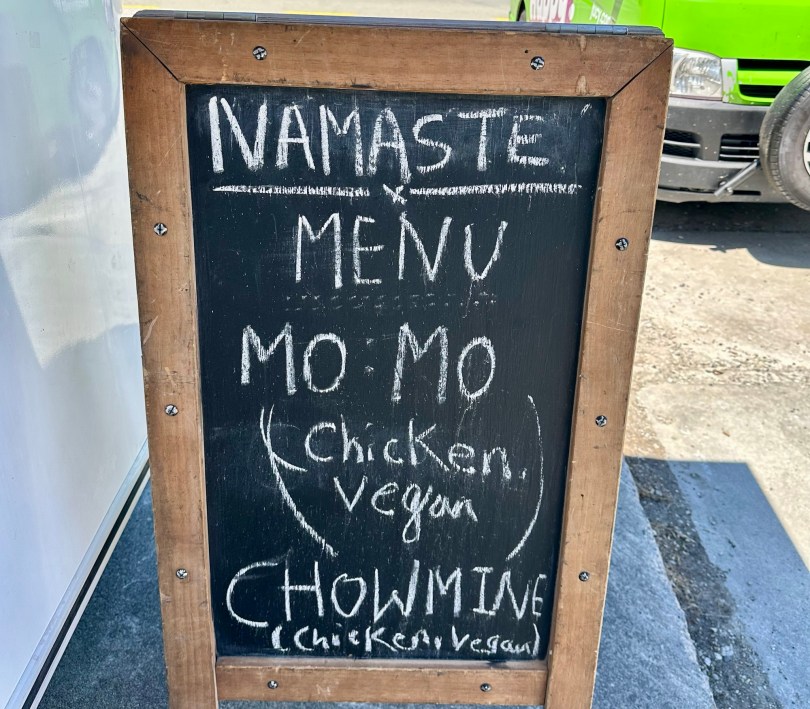 NAMASTE
MENU
MO:MO
(Chicken,
Vegan)
CHOWMINE
(Chicken, Vegan)